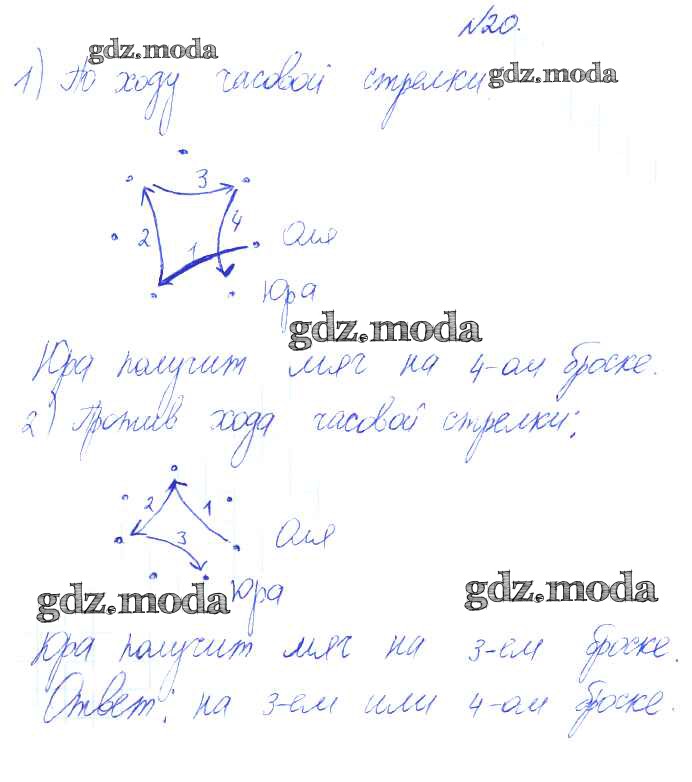 №20.
gdz.moda
1) По ходу часовой стрелки:
gdz.moda
3
4
2
1
Оля
Юра
gdz.moda
Юра получит мяч на 4-ом броске.
2) Против хода часовой стрелки:
2
1
3
Оля
gdz.moda
Юра
gdz.moda
Юра получит мяч на 3-ем броске.
Ответ: на 3-ем или 4-ом броске.